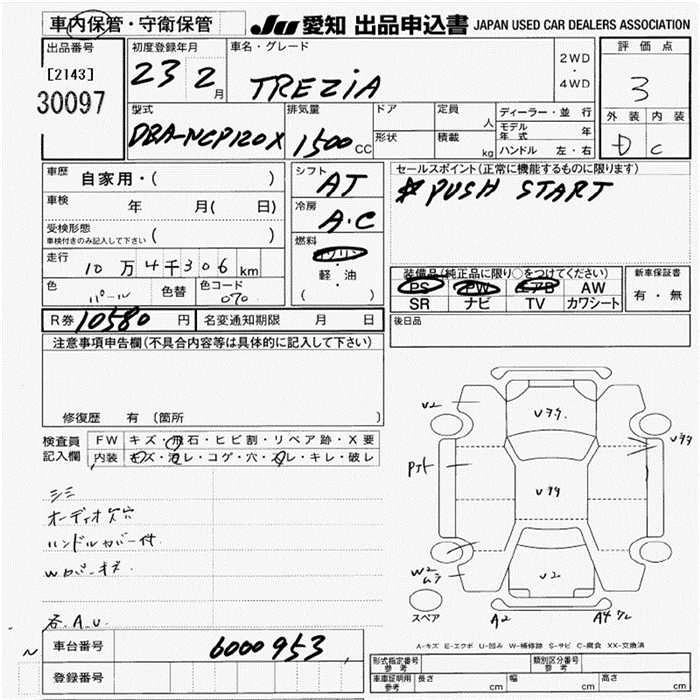 車内保管・守衛保管
JU 愛知 出品申込書 JAPAN USED CAR DEALERS ASSOCIATION
出品番号 初度登録年月 車名・グレード 2WD 評価点
[2143] 23 2月 TREZIA ・ 3
30097 4WD
型式 排気量 ドア 定員 人 ディーラー・並行 外装 内装
DBA-NCP120X 1500CC 形状 積載 kg モデル年式 年 D C
ハンドル 左・右
車歴 自家用・( ) シフト AT セールスポイント(正常に機能するものに限ります)
車検 年 月( 日) 冷房 A.C PUSH START
受検形態 ( )
車検付きのみ記入して下さい
燃料 ガソリン
走行 10万4千306km 軽・油 装備品(純正品に限り○をつけてください) 新車保証書
色 パール 色替 色コード 070 ( ) PS PW エアB AW 有・無
SR ナビ TV カワシート
R券 10580円 名変通知期限 月 日 後日品
注意事項申告欄(不具合内容等は具体的に記入して下さい)
修復歴 有 (箇所 )
検査員 FW キズ・飛石・ヒビ割・リペア跡・X要
記入欄 内装 キズ・汚レ・コゲ・穴・スレ・キレ・破レ
V2
V99.
V99
V99
V2
W2
A2
A4
シミ
オーディオ欠穴
ハンドルカバー付
Wカバーキズ
各A.U.
スペア
A-キズ E-エクボ U-凹み W-補修跡 S-サビ C-腐食 XX-交換済
車台番号 6000953
登録番号
形式指定番号 参考 類別区分番号 参考
車庫証明用 参考 長さ cm 幅 cm 高さ cm